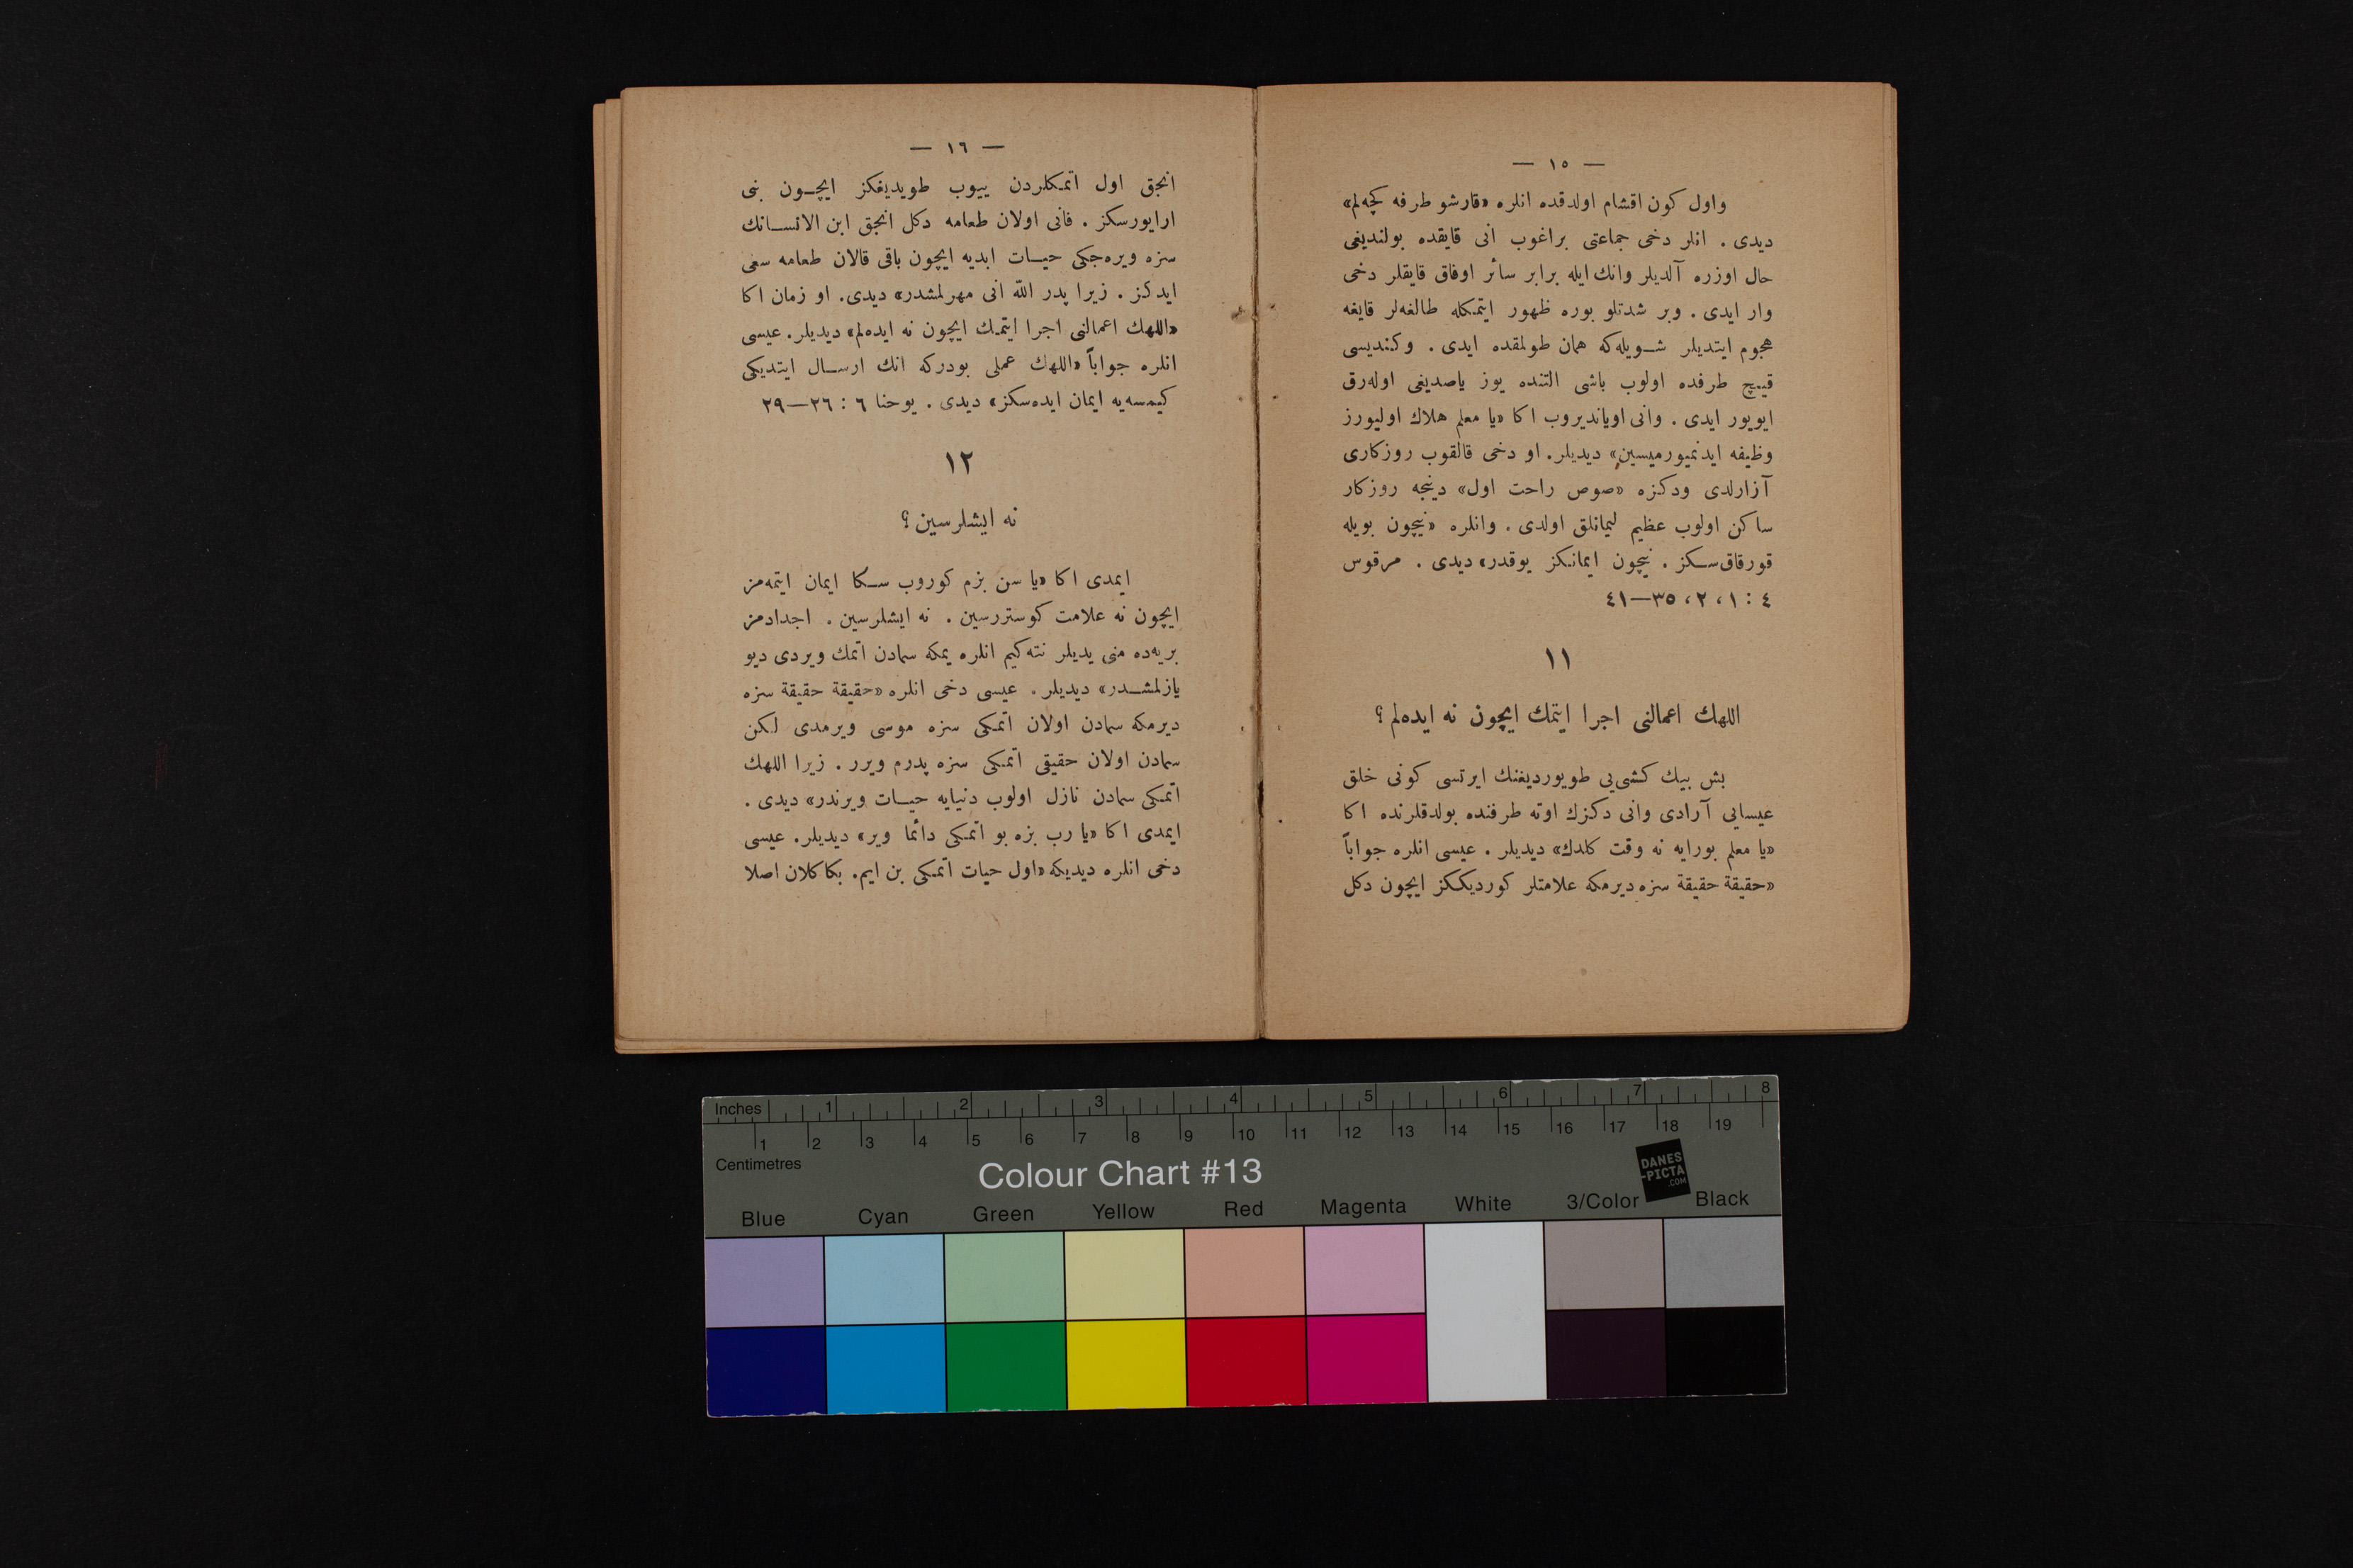 — ١٥ —
واول كون اقشام اولدقده انلره «قارشو طرفه كچه‌لم»
ديدى . انلر دخى جماعتى براغوب انى قايقده بولنديغى
حال اوزره آلديلر وانك ايله برابر سائر اوفاق قايقلر دخى
وار ايدى . وبر شدتلو بوره ظهور ايتمكله طالغه‌لر قايغه
هجوم ايتديلر شويله‌كه همان طولمقده ايدى . وكنديسى
قيچ طرفده اولوب باشى التنده يوز ياصديغى اوله‌رق
ايويور ايدى . وانى اوياندیروب اكا «يا معلم هلاك اوليورز
وظيفه ايدنميورميسين» ديديلر. او دخى قالقوب روزكارى
آزارلدى ودكزه «صوص راحت اول» دينجه روزكار
ساكن اولوب عظيم ليمانلق اولدى . وانلره «نيچون بويله
قورقاق‌سكز . نيچون ايمانكز يوقدر» ديدى . مرقوس
٤ : ١ ، ٢ ، ٣٥—٤١
١١
اللهك اعمالنى اجرا ايتمك ايچون نه ايده‌لم ؟
بش بيك كشى‌يى طويورديغنك ايرتسى كونى خلق
عيسايى آرادى وانى دكزك اوته طرفنده بولدقلرنده اكا
«يا معلم بورايه نه وقت كلدك» ديديلر . عيسى انلره جواباً
«حقيقة حقيقة سزه ديرمكه علامتلر كورديككز ايچون دكل
— ١٦ —
انجق اول اتمكلردن ييوب طويديغكز ايچون بنى
ارايورسكز . فانى اولان طعامه دكل انجق ابن الانسانك
سزه ويره‌جكى حيات ابديه ايچون باقى قالان طعامه سعى
ايدكز . زيرا پدر الله انى مهرلمشدر» ديدى. او زمان اكا
«اللهك اعمالنى اجرا ايتمك ايچون نه ايده‌لم» ديديلر. عيسى
انلره جواباً «اللهك عملى بودركه انك ارسال ايتديكى
كيمسه‌يه ايمان ايده‌سكز» ديدى . يوحنا ٦ : ٢٦—٢٩
١٢
نه ايشلرسين ؟
ايمدى اكا «يا سن بزم كوروب سكا ايمان ايتمه‌مز
ايچون نه علامت كوستررسين . نه ايشلرسين . اجدادمز
بريه‌ده منى يديلر نته‌كيم انلره يمكه سمادن اتمك ويردى ديو
يازلمشدر» ديديلر . عيسى دخى انلره «حقيقة حقيقة سزه
ديرمكه سمادن اولان اتمكى سزه موسى ويرمدى لكن
سمادن اولان حقيقى اتمكى سزه پدرم ويرر . زيرا اللهك
اتمكى سمادن نازل اولوب دنيايه حيات ويرندر» ديدى .
ايمدى اكا «يا رب بزه بو اتمكى دائما وير» ديديلر. عيسى
دخى انلره ديديكه «اول حيات اتمكى بن ايم. بكا كلان اصلا
Inches 1 2 3 4 5 6 7 8
1 2 3 4 5 6 7 8 9 10 11 12 13 14 15 16 17 18 19
Centimetres
Colour Chart #13
DANES
-PICTA
.COM
Blue Cyan Green Yellow Red Magenta White 3/Color Black